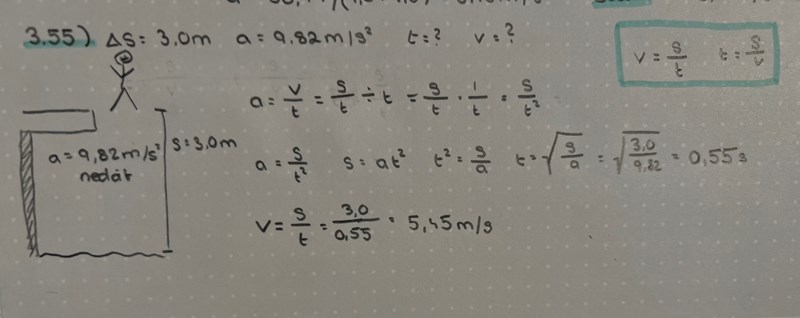 3.55) ΔS = 3,0m a = 9.82m/s² t = ? v = ?
v = s/t t = s/v
a = v/t = s/t ÷ t = s/t · 1/t = s/t²
a = 9,82m/s² nedåt
s = 3,0m
a = s/t² s = at² t² = s/a t = √(s/a) = √(3,0/9.82) = 0,55s
v = s/t = 3,0/0,55 = 5,45m/s